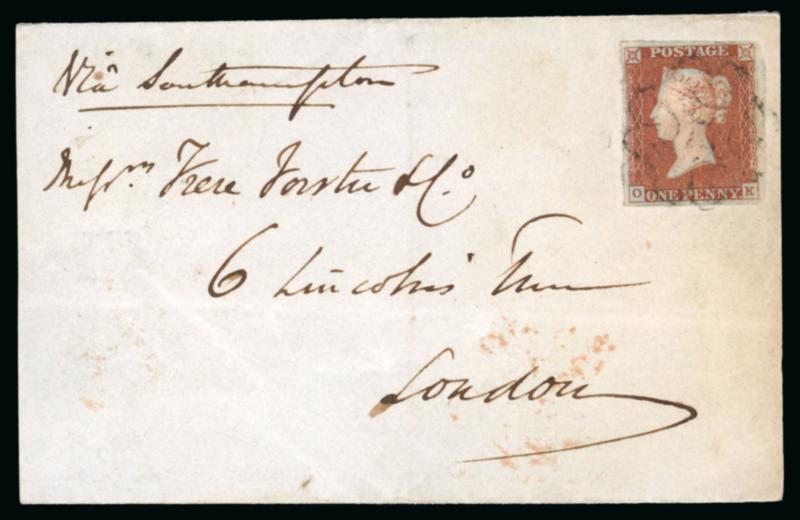 Via Southampton
POSTAGE
Messrs Frere Forster & Co.
O ONE PENNY K
6 Lincoln's Inn
London